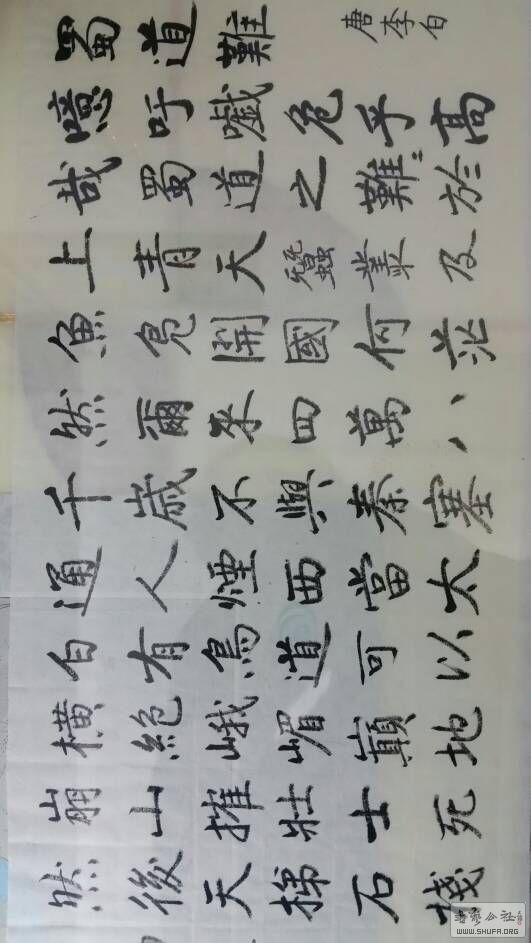 蜀道難
唐李白
噫吁嚱危乎高
哉蜀道之難〻於
上青天蠶叢及
魚鳧開國何茫
然爾来四萬八
千歳不與秦塞
通人煙西當太
白有鳥道可以
橫絶峨嵋巔地
崩山摧壯士死
然後天梯石棧
書藝公社
WWW.SHUFA.ORG